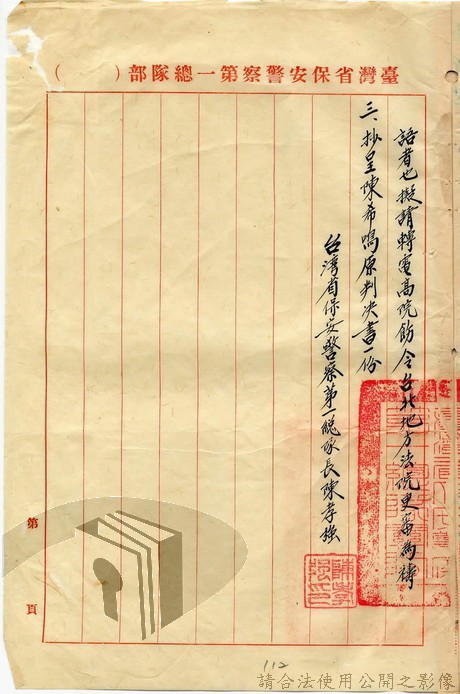 臺灣省保安警察第一總隊部（　　）
諮者也擬請轉電高院飭令台北地方法院更審為禱
三、抄呈陳希鳴原判決書一份
台灣省保安警察第一總隊長陳孝強
陳孝強印
第　頁
112
請合法使用公開之影像